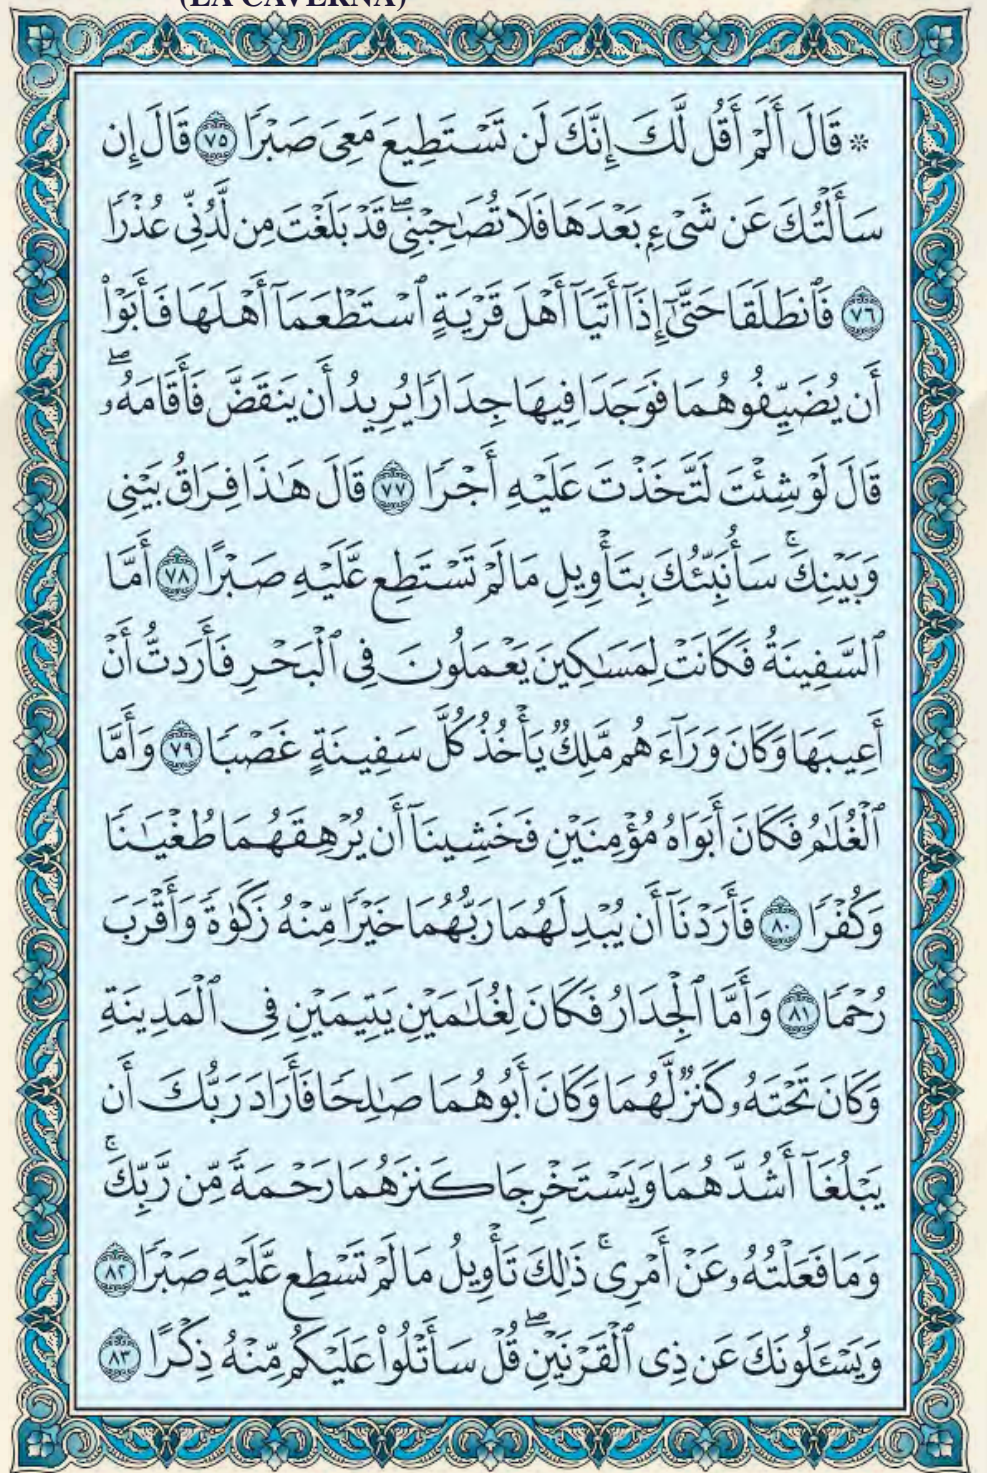 (LA CAVERNA)
۞ قَالَ أَلَمْ أَقُل لَّكَ إِنَّكَ لَن تَسْتَطِيعَ مَعِيَ صَبْرًا ٧٥ قَالَ إِن
سَأَلْتُكَ عَن شَيْءٍۭ بَعْدَهَا فَلَا تُصَٰحِبْنِيۖ قَدْ بَلَغْتَ مِن لَّدُنِّي عُذْرًا
٧٦ فَٱنطَلَقَا حَتَّىٰٓ إِذَآ أَتَيَآ أَهْلَ قَرْيَةٍ ٱسْتَطْعَمَآ أَهْلَهَا فَأَبَوْا۟
أَن يُضَيِّفُوهُمَا فَوَجَدَا فِيهَا جِدَارًا يُرِيدُ أَن يَنقَضَّ فَأَقَامَهُۥۖ
قَالَ لَوْ شِئْتَ لَتَّخَذْتَ عَلَيْهِ أَجْرًا ٧٧ قَالَ هَٰذَا فِرَاقُ بَيْنِي
وَبَيْنِكَۚ سَأُنَبِّئُكَ بِتَأْوِيلِ مَا لَمْ تَسْتَطِع عَّلَيْهِ صَبْرًا ٧٨ أَمَّا
ٱلسَّفِينَةُ فَكَانَتْ لِمَسَٰكِينَ يَعْمَلُونَ فِي ٱلْبَحْرِ فَأَرَدتُّ أَنْ
أَعِيبَهَا وَكَانَ وَرَآءَهُم مَّلِكٌ يَأْخُذُ كُلَّ سَفِينَةٍ غَصْبًا ٧٩ وَأَمَّا
ٱلْغُلَٰمُ فَكَانَ أَبَوَاهُ مُؤْمِنَيْنِ فَخَشِينَآ أَن يُرْهِقَهُمَا طُغْيَٰنًا
وَكُفْرًا ٨٠ فَأَرَدْنَآ أَن يُبْدِلَهُمَا رَبُّهُمَا خَيْرًا مِّنْهُ زَكَوٰةً وَأَقْرَبَ
رُحْمًا ٨١ وَأَمَّا ٱلْجِدَارُ فَكَانَ لِغُلَٰمَيْنِ يَتِيمَيْنِ فِي ٱلْمَدِينَةِ
وَكَانَ تَحْتَهُۥ كَنزٌ لَّهُمَا وَكَانَ أَبُوهُمَا صَٰلِحًا فَأَرَادَ رَبُّكَ أَن
يَبْلُغَآ أَشُدَّهُمَا وَيَسْتَخْرِجَا كَنزَهُمَا رَحْمَةً مِّن رَّبِّكَۚ
وَمَا فَعَلْتُهُۥ عَنْ أَمْرِيۚ ذَٰلِكَ تَأْوِيلُ مَا لَمْ تَسْطِع عَّلَيْهِ صَبْرًا ٨٢
وَيَسْـَٔلُونَكَ عَن ذِي ٱلْقَرْنَيْنِۖ قُلْ سَأَتْلُوا۟ عَلَيْكُم مِّنْهُ ذِكْرًا ٨٣